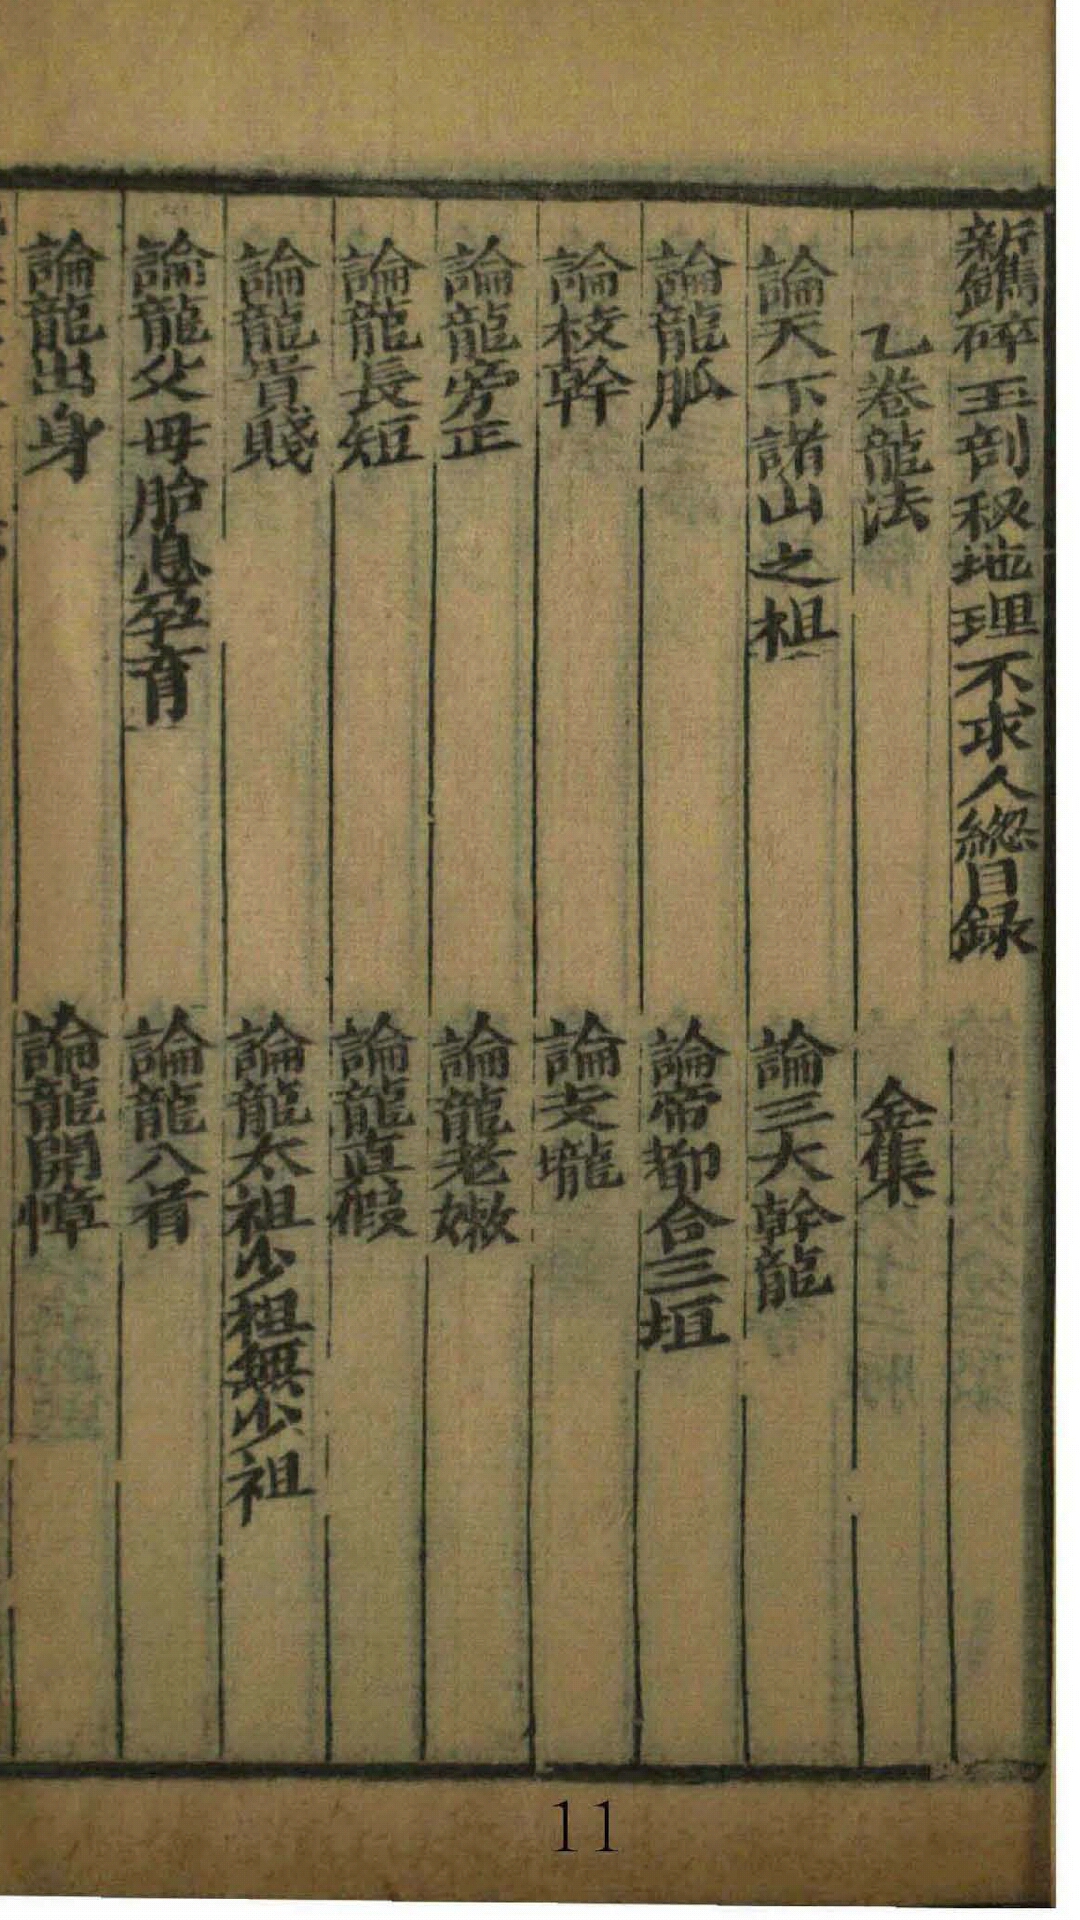 新鐫碎玉剖秘地理不求人總目録
乙卷龍法 金集
論天下諸山之祖 論三大幹龍
論龍脉 論帝都合三垣
論枝幹 論支壠
論龍旁正 論龍老嫩
論龍長短 論龍真假
論龍貴賤 論龍太祖少祖無少祖
論龍父母胎息孕育 論龍入首
論龍出身 論龍開幛
11